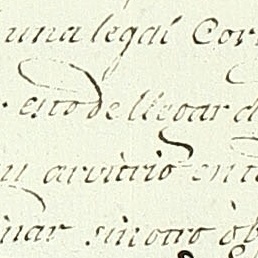 una legal Cor
esto de llegar a
su arvitrio en t
inar sin otro ob